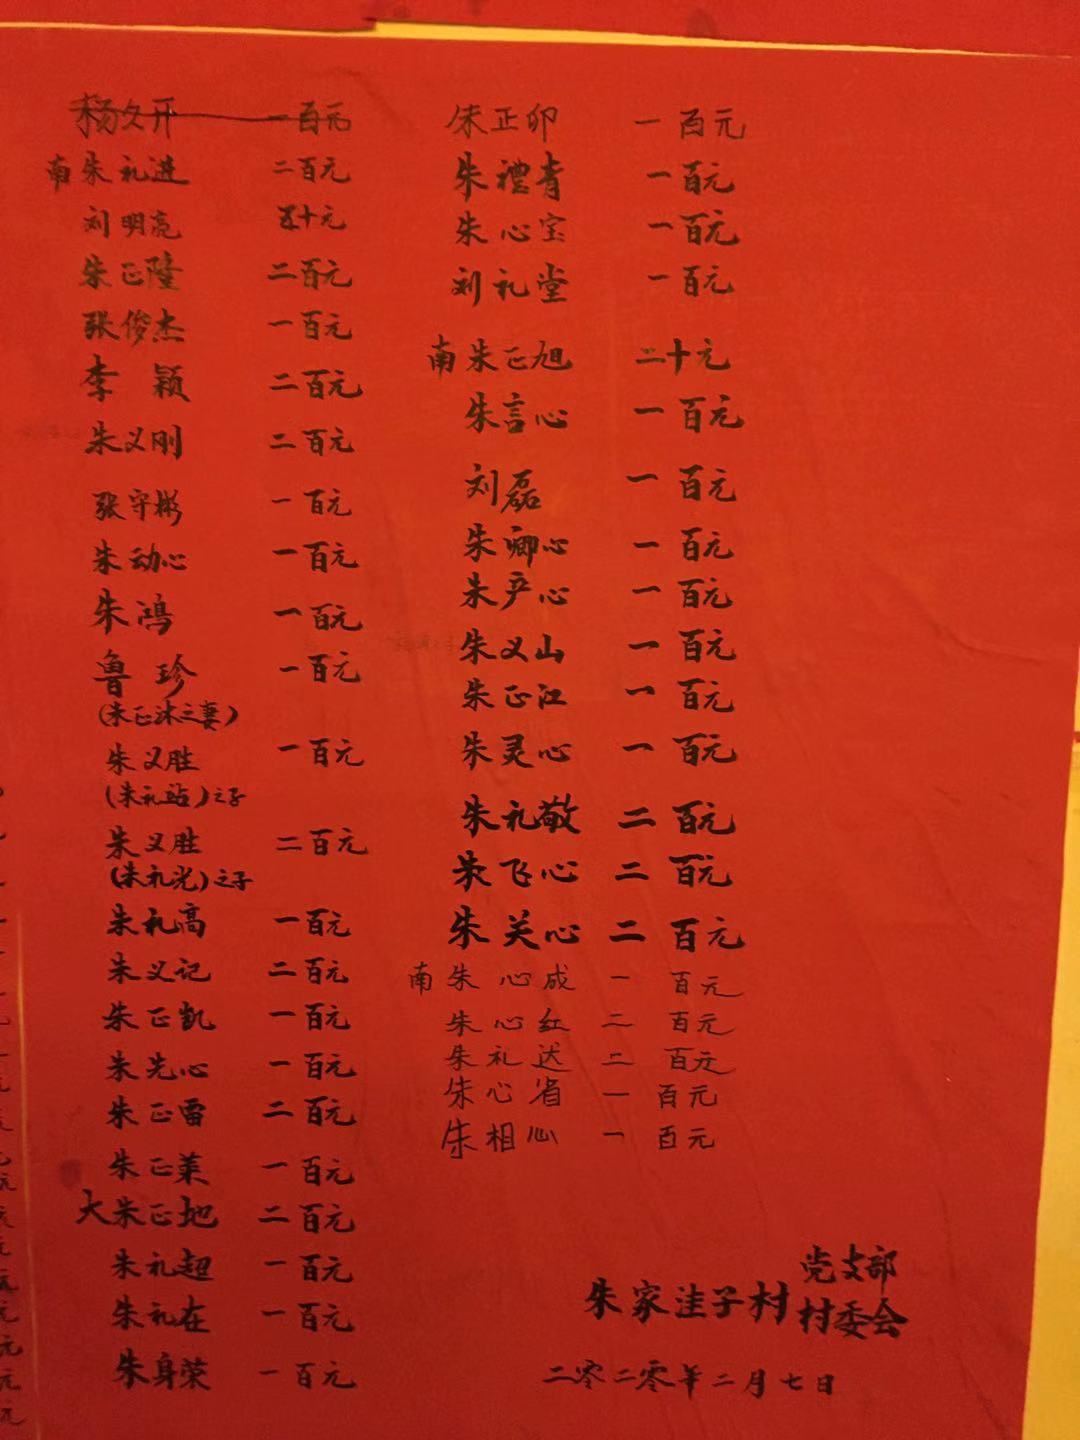 杨久开 一百元
南朱礼进 二百元
刘明亮 五十元
朱正隆 二百元
张俊杰 一百元
李颖 二百元
朱义刚 二百元
张守彬 一百元
朱动心 一百元
朱鸿 一百元
鲁珍 一百元
(朱正沐之妻)
朱义胜 一百元
(朱礼站)之子
朱义胜 二百元
(朱礼光)之子
朱礼高 一百元
朱义记 二百元
朱正凯 一百元
朱先心 一百元
朱正雷 二百元
朱正莱 一百元
大朱正地 二百元
朱礼超 一百元
朱礼在 一百元
朱身荣 一百元
朱正卯 一百元
朱禮青 一百元
朱心宝 一百元
刘礼堂 一百元
南朱正旭 二十元
朱言心 一百元
刘磊 一百元
朱卿心 一百元
朱产心 一百元
朱义山 一百元
朱正江 一百元
朱灵心 一百元
朱礼敬 二百元
朱飞心 二百元
朱关心 二百元
南朱心成 一百元
朱心红 二百元
朱礼达 二百元
朱心省 一百元
朱相心 一百元
朱家洼子村 党支部
村委会
二零二零年二月七日